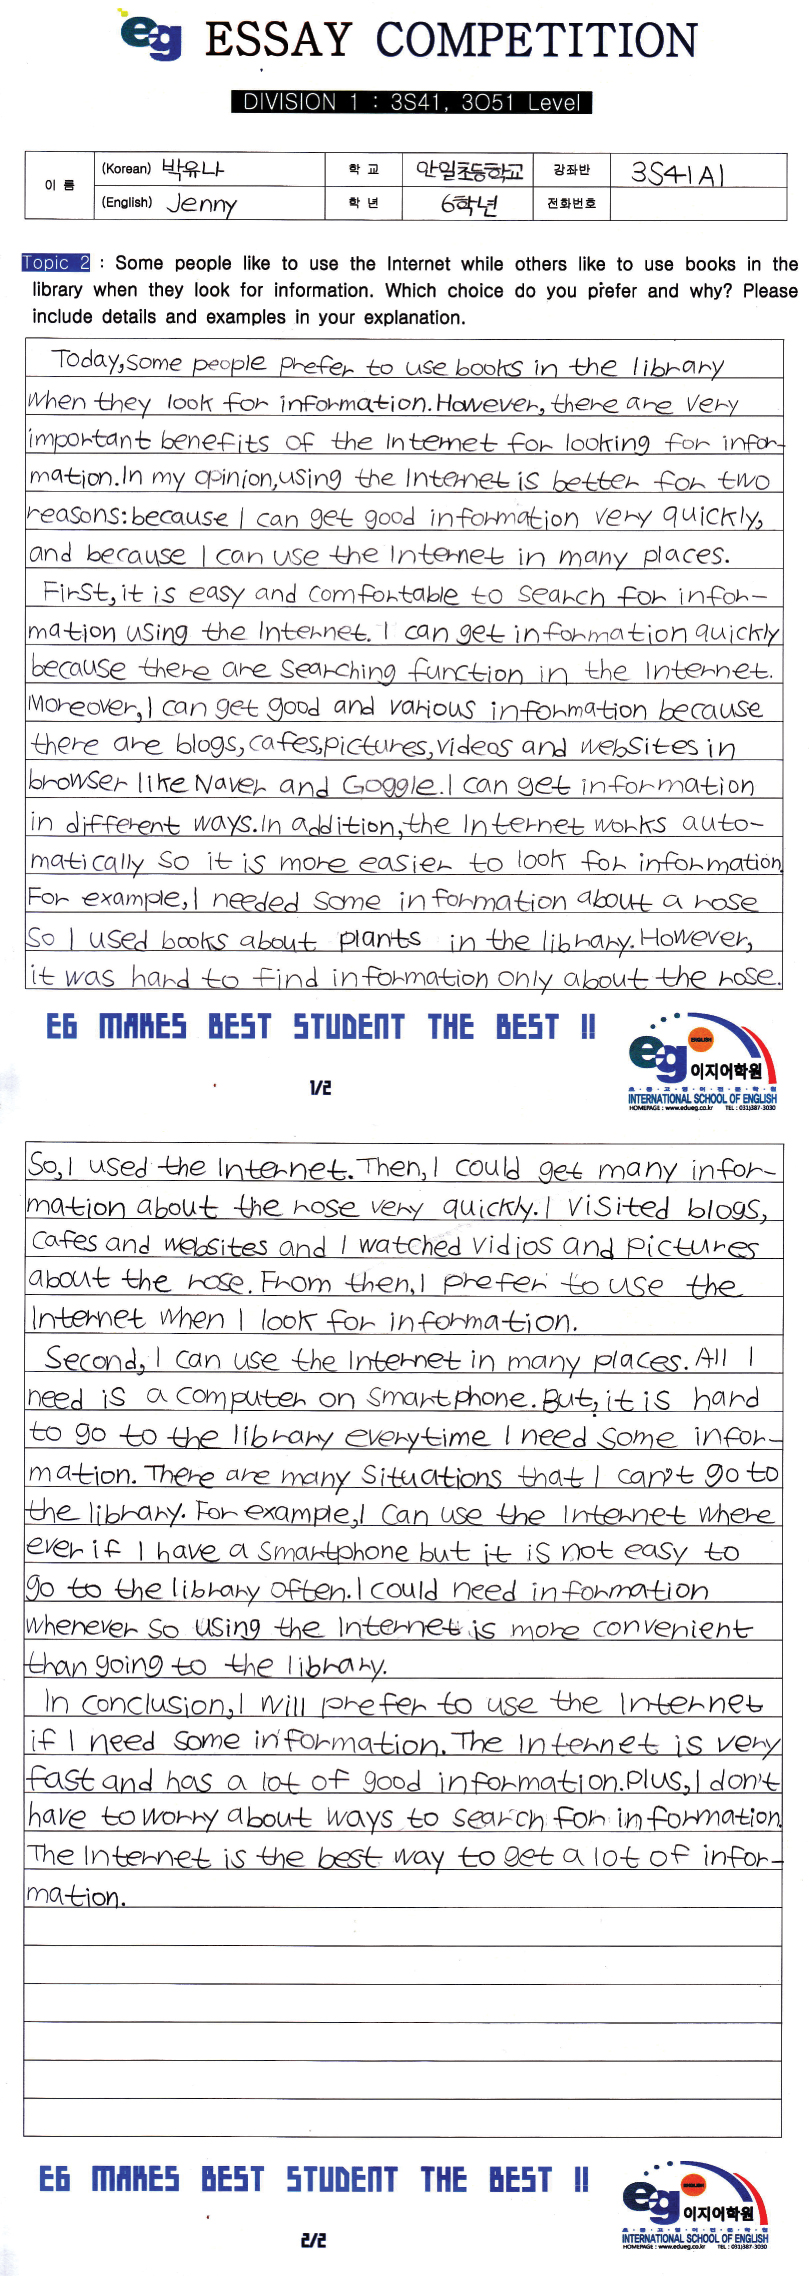 eg ESSAY COMPETITION
DIVISION 1 : 3S41, 3O51 Level
이 름 (Korean) 박유나 학 교 안일초등학교 강좌반 3S41A1
(English) Jenny 학 년 6학년 전화번호
Topic 2 : Some people like to use the Internet while others like to use books in the
library when they look for information. Which choice do you prefer and why? Please
include details and examples in your explanation.
Today, some people prefer to use books in the library
when they look for information. However, there are very
important benefits of the Internet for looking for infor-
mation. In my opinion, using the Internet is better for two
reasons: because I can get good information very quickly,
and because I can use the Internet in many places.
First, it is easy and comfortable to search for infor-
mation using the Internet. I can get information quickly
because there are searching function in the Internet.
Moreover, I can get good and various information because
there are blogs, cafes, pictures, videos and websites in
browser like Naver and Goggle. I can get information
in different ways. In addition, the Internet works auto-
matically so it is more easier to look for information.
For example, I needed some information about a rose
so I used books about plants in the library. However,
it was hard to find information only about the rose.
E6 MAKES BEST STUDENT THE BEST !!
eg ENGLISH 이지어학원
초·중·고 영어전문학원
INTERNATIONAL SCHOOL OF ENGLISH
HOMEPAGE : www.edueg.co.kr TEL : 031)387-3030
1/2
So, I used the Internet. Then, I could get many infor-
mation about the rose very quickly. I visited blogs,
cafes and websites and I watched vidios and pictures
about the rose. From then, I prefer to use the
Internet when I look for information.
Second, I can use the Internet in many places. All I
need is a computer on smartphone. But, it is hard
to go to the library everytime I need some infor-
mation. There are many situations that I can't go to
the library. For example, I can use the Internet where
ever if I have a smartphone but it is not easy to
go to the library often. I could need information
whenever so using the Internet is more convenient
than going to the library.
In conclusion, I will prefer to use the Internet
if I need some information. The Internet is very
fast and has a lot of good information. Plus, I don't
have to worry about ways to search for information.
The Internet is the best way to get a lot of infor-
mation.
E6 MAKES BEST STUDENT THE BEST !!
eg ENGLISH 이지어학원
초·중·고 영어전문학원
INTERNATIONAL SCHOOL OF ENGLISH
HOMEPAGE : www.edueg.co.kr TEL : 031)387-3030
2/2